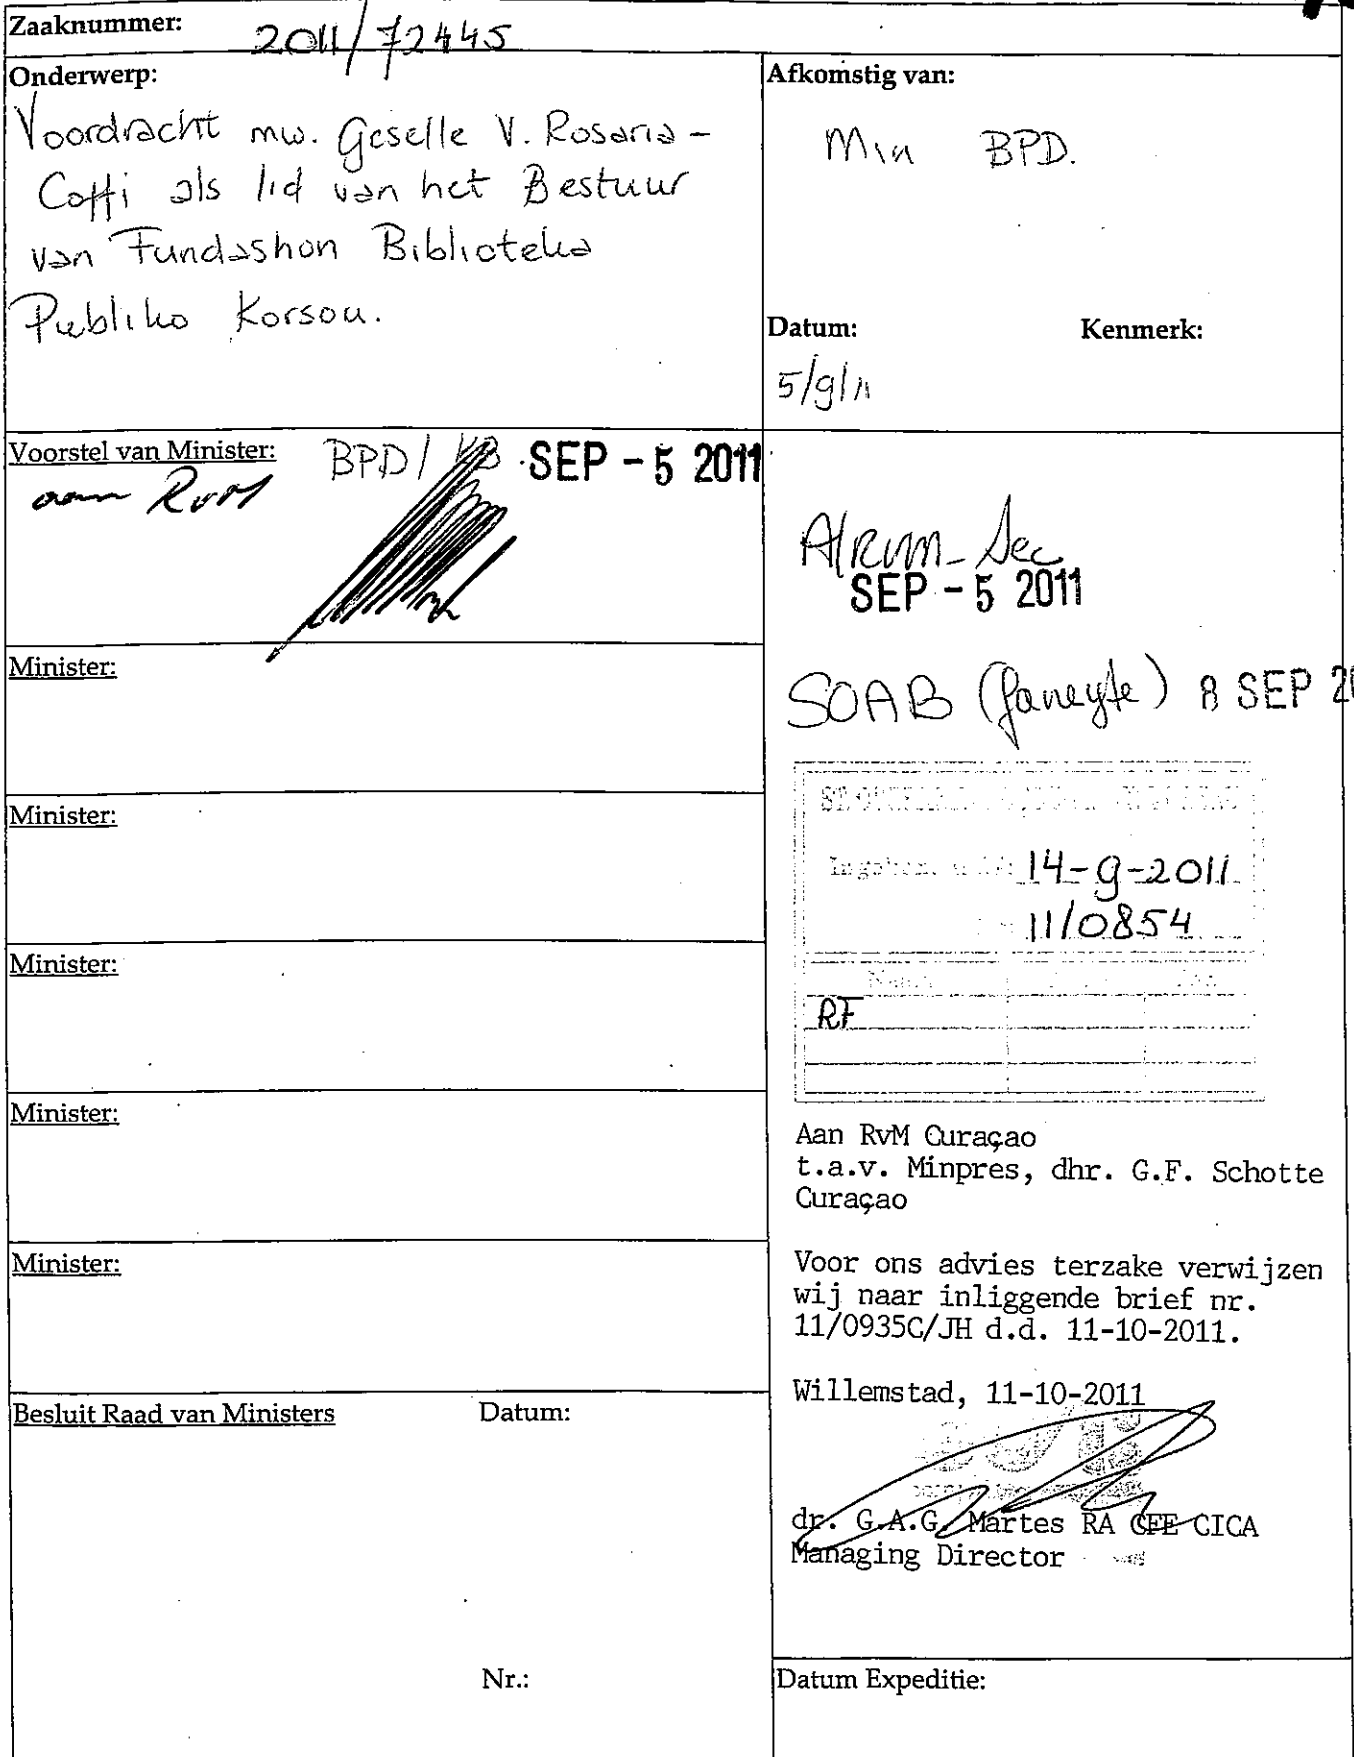 Zaaknummer: 2011/72445
Onderwerp:
Voordracht mw. Geselle V. Rosaria-
Coffi als lid van het Bestuur
van Fundashon Biblioteka
Publiko Korsou.
Afkomstig van:
Min BPD.
Datum: Kenmerk:
5/9/11
Voorstel van Minister: BPD/ VB SEP - 5 2011
aan RvM
Minister:
Minister:
Minister:
Minister:
Minister:
Besluit Raad van Ministers Datum:
Nr.:
A/RVM-Sec
SEP - 5 2011
SOAB (Janeyte) 8 SEP 20
14-9-2011
11/0854
RF
Aan RvM Curaçao
t.a.v. Minpres, dhr. G.F. Schotte
Curaçao
Voor ons advies terzake verwijzen
wij naar inliggende brief nr.
11/0935C/JH d.d. 11-10-2011.
Willemstad, 11-10-2011
dr. G.A.G. Martes RA CFE CICA
Managing Director
Datum Expeditie: